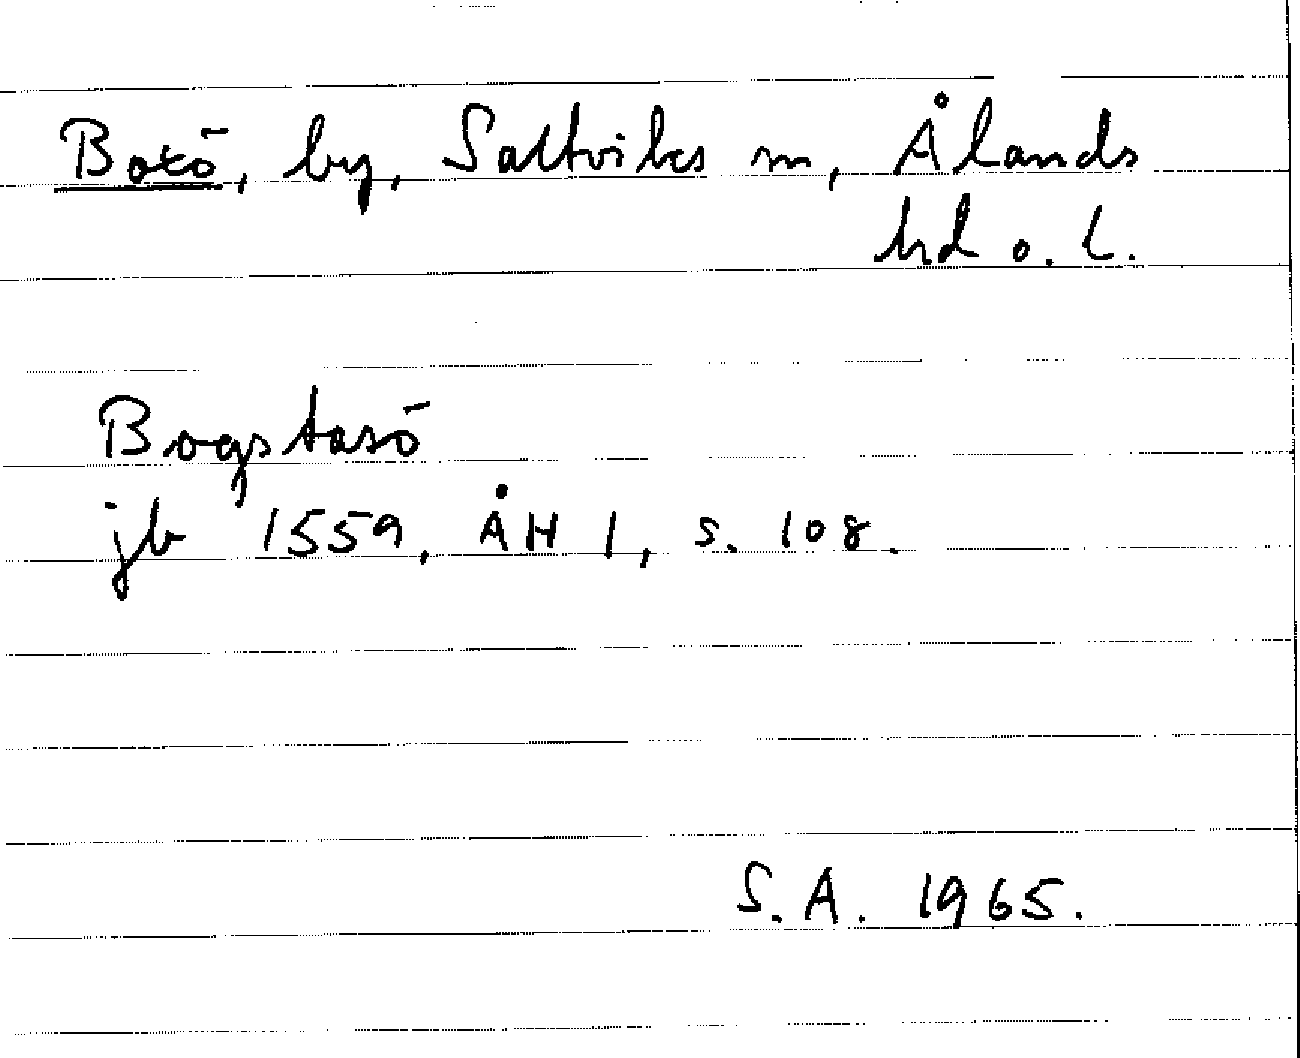 Botö, by, Saltviks sn, Ålands
hd o. l.
Bogstasö
jb 1559, ÅH 1, s. 108.
S.A. 1965.